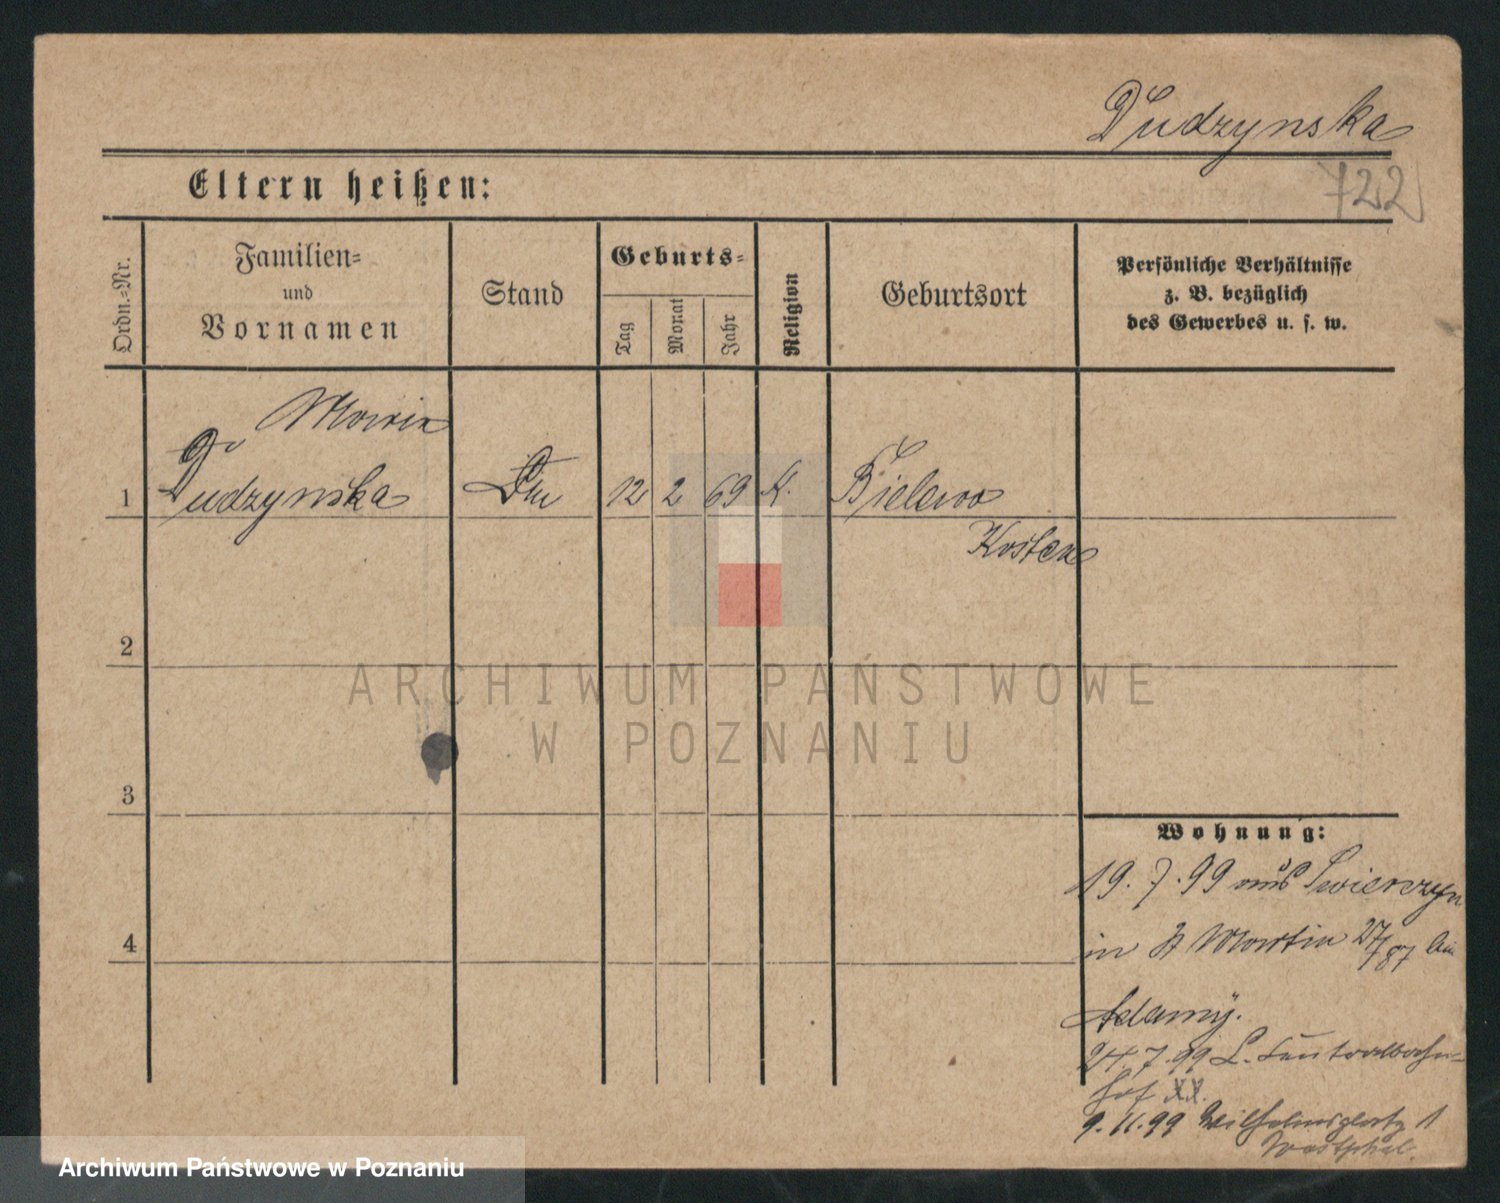 Dudzynska
722
Eltern heißen:
Ordn.-Nr.
Familien-
und
Vornamen
Stand
Geburts-
Tag
Monat
Jahr
Religion
Geburtsort
Persönliche Verhältnisse
z. B. bezüglich
des Gewerbes u. s. w.
Maria
1 Dudzynska 12 2 69 K. Bielewo
Kosten
2
ARCHIWUM PAŃSTWOWE
W POZNANIU
3
Wohnung:
19.7.99 aus Swierczyn
4
in St Martin 27/87 bei
Adamy.
24.7.99 L. Centralbahn-
hof XX.
9.11.99 Wilhelmsplatz 1
Westphal.
Archiwum Państwowe w Poznaniu